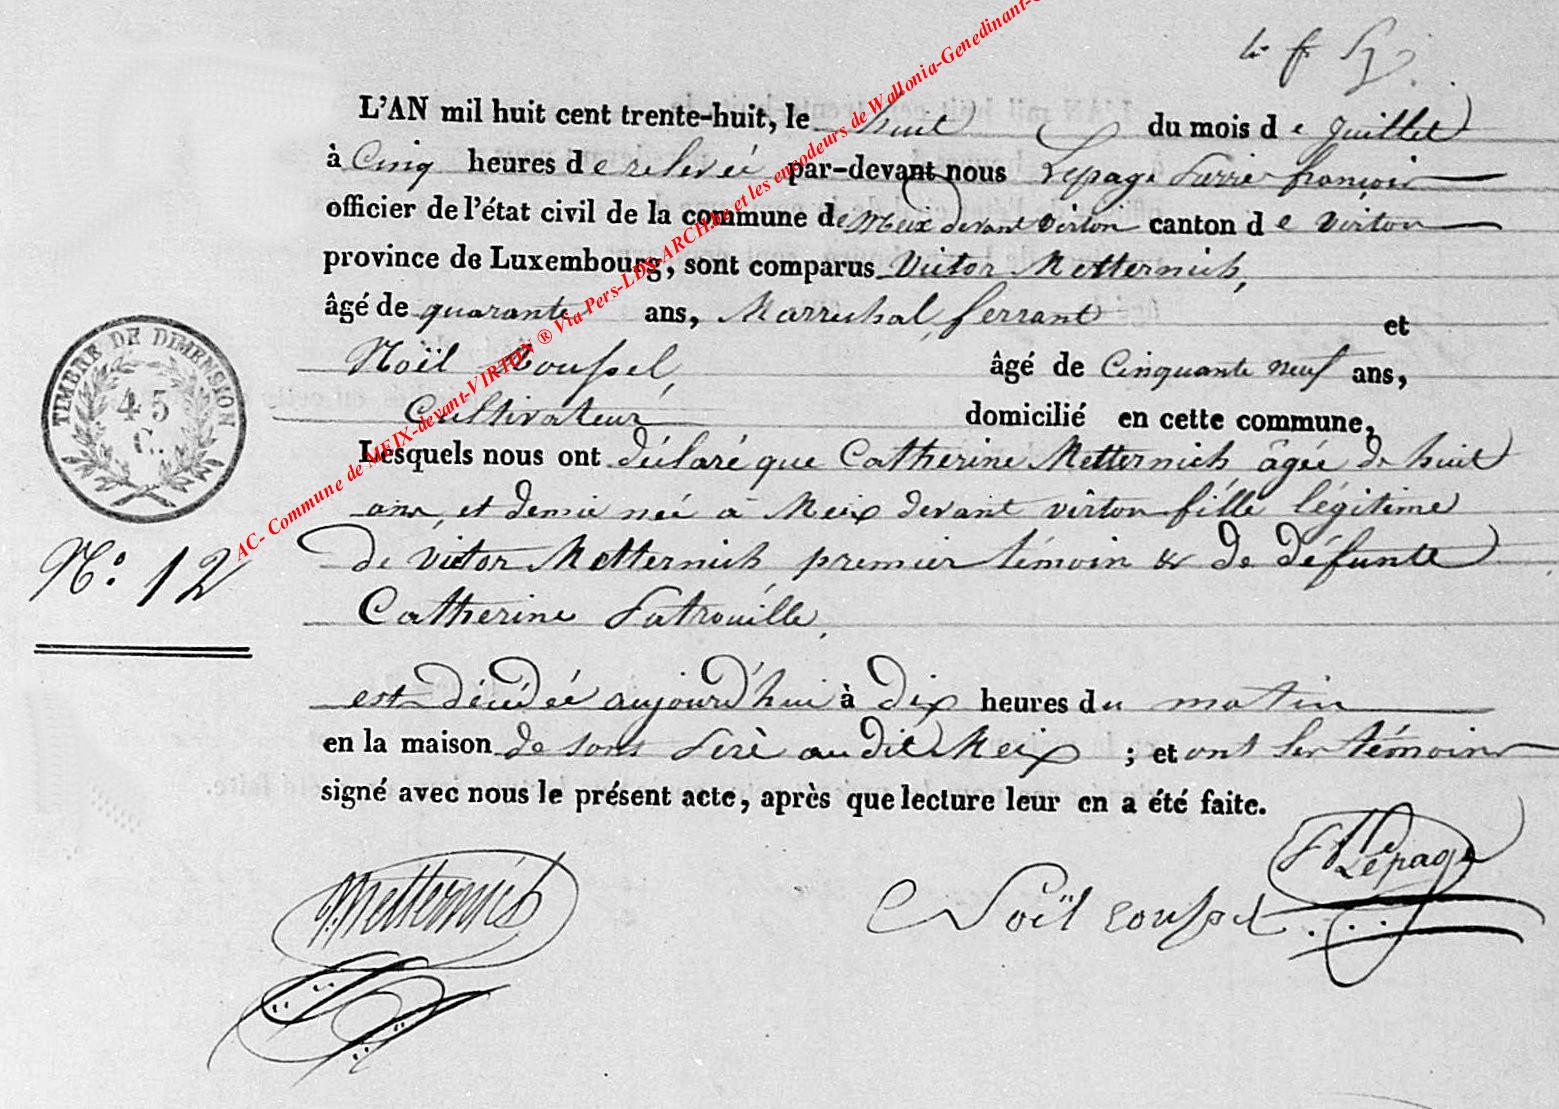 L'AN mil huit cent trente-huit, le huit du mois de juillet
à Cinq heures de relevée par-devant nous Lepage Pierre françois
officier de l'état civil de la commune de Meix devant virton canton de virton
province de Luxembourg, sont comparus Victor Metternich,
âgé de quarante ans, Marrechal ferrant et
Noël Roussel, âgé de Cinquante neuf ans,
Cultivateur domicilié en cette commune,
Lesquels nous ont déclaré que Catherine Metternich âgée de huit
ans, et demie née à Meix devant virton fille légitime
de victor Metternich, premier témoin & de défunte
Catherine Patrouille,
est décédée aujourd'hui à dix heures du matin
en la maison de sons Perè au dit Meix ; et ont les témoins
signé avec nous le présent acte, après que lecture leur en a été faite.
TIMBRE DE DIMENSION
45
C.
N.° 12
AC- Commune de MEIX-devant-VIRTON ® Via Pers-LDS-ARCH.be et les encodeurs de Wallonia-Genedinant-
V. Metternich
Noël roussel
Lepage